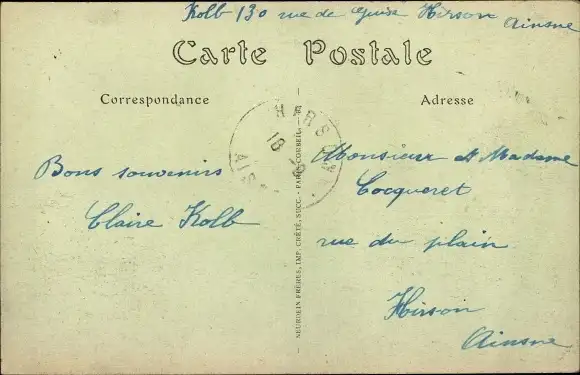 Kolb 130 rue de Guise Hirson
Ainsne
Carte Postale
Correspondance
Adresse
HIRSON
18
AIS
Bons souvenirs
Claire Kolb
NEURDEIN FRÈRES, IMP. CRÉTÉ, SUCC. - PARIS-CORBEIL
Monsieur et Madame
Cocqueret
rue du plain
Hirson
Ainsne